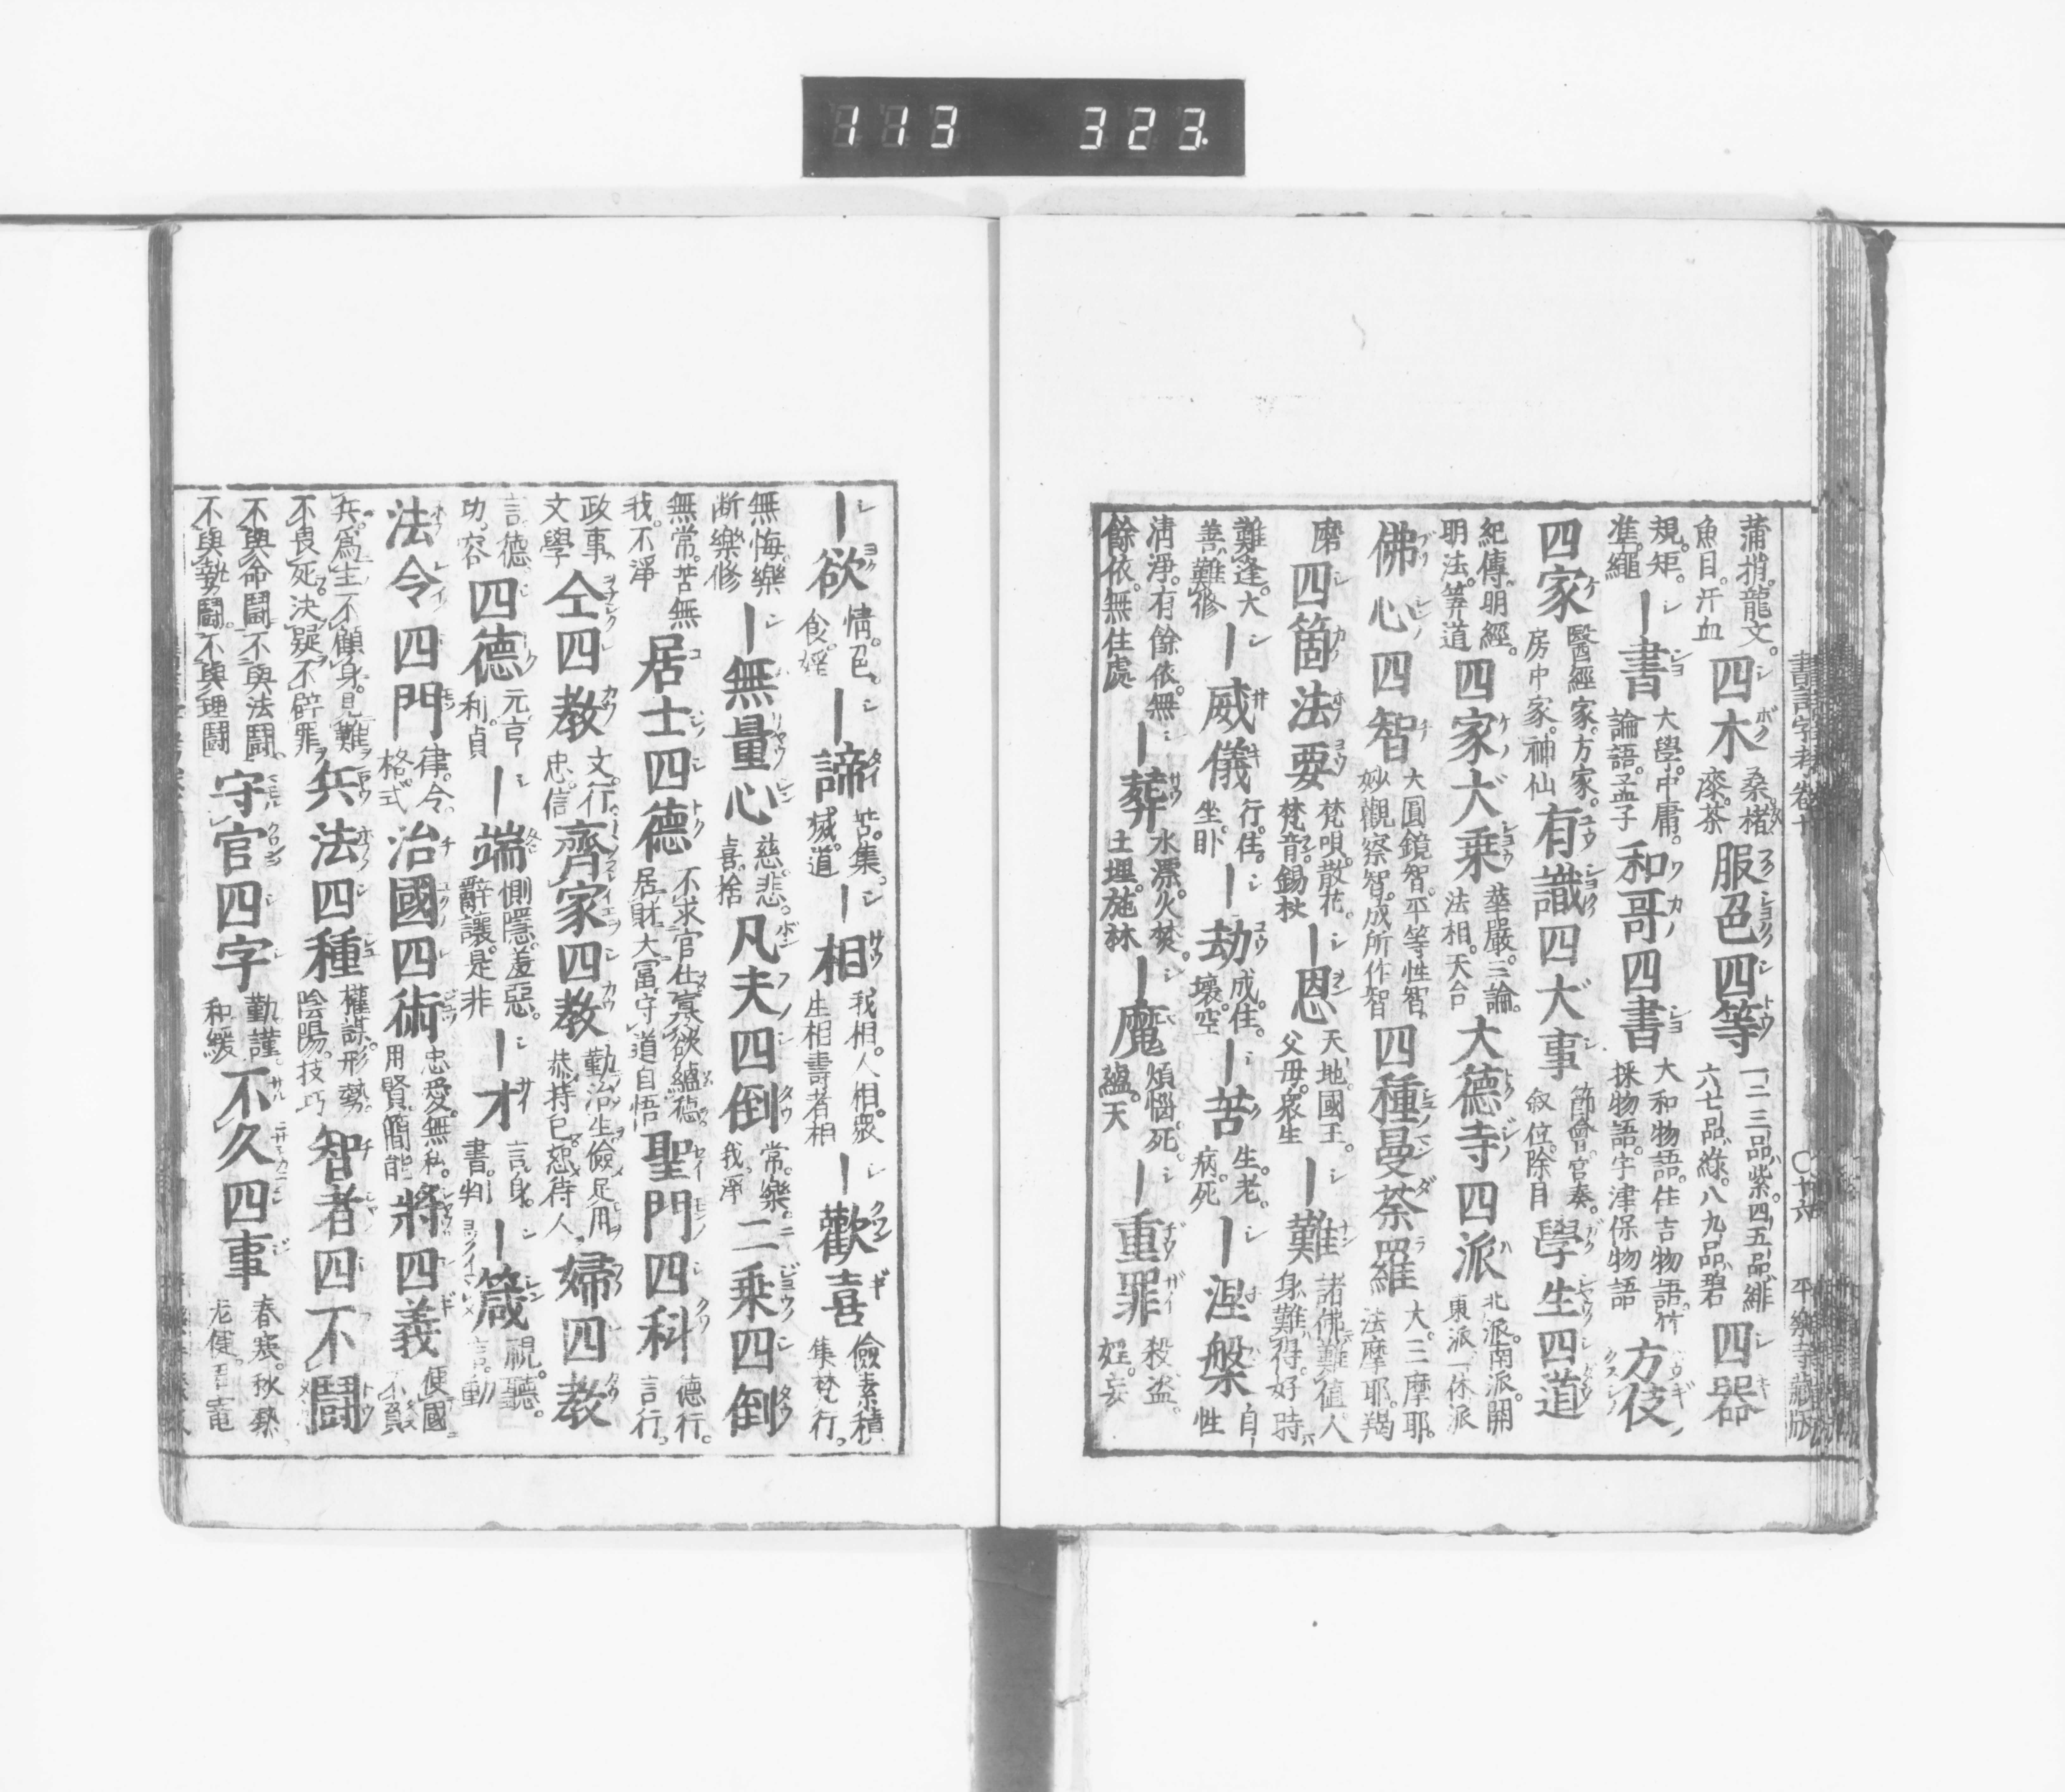 113 323
書言字考卷十 〇十六 平樂寺藏版
蒲捎。龍文。魚目。汗血 四木 桑。楮。漆。茶 服色四等 一二三品紫。四五品緋 六七品綠。八九品碧 四器
規。矩。準。繩 ―書 大學。中庸。論語。孟子 和哥四書 大和物語。住吉物語。竹採物語。宇津保物語 方伎
四家 醫經家。方家。房中家。神仙 有識四大事 節會。官奏。叙位。除目 學生四道
紀傳。明經。明法。筭道 四家大乗 華嚴。三論。法相。天台 大德寺四派 北派。南派。開東派。一休派
佛心四智 大圓鏡智。平等性智。妙觀察智。成所作智 四種曼荼羅 大。三摩耶。法摩耶。羯
磨 四箇法要 梵唄。散花。梵音。錫杖 ―恩 天地。國王。父母。衆生 ―難 諸佛難値。人身難得。好時
難逢。大善難修 ―威儀 行。住。坐。臥 ―劫 成。住。壞。空 ―苦 生。老。病。死 ―涅槃 自性
淸淨。有餘依。無餘依。無住處 ―葬 水漂。火焚。土埋。施林 ―魔 煩惱。死。蘊。天 ―重罪 殺。盗。婬。妄
―欲 情。色。食。婬 ―諦 苦。集。滅。道 ―相 我相。人相。衆生相壽者相 ―歡喜 儉素積集梵行。
無悔。樂断樂修 ―無量心 慈。悲。喜。捨 凡夫四倒 常。樂。我。淨 二乗四倒
無常。苦無我。不淨 居士四德 不求官仕寡欲蘊德。居財大冨守道自悟 聖門四科 德行。言行。
政事。文學 仝四教 文。行。忠。信 齊家四教 勤治生儉足用恭持己恕待人 婦四教
言。德。功。容 四德 元。亨。利。貞 ―端 惻隱。羞惡。辭讓。是非 ―才 言。身。書。判 ―箴 視。聽。言。動
法令四門 律。令。格。式 治國四術 忠愛。無私。用賢。簡能 將四義 便國不負
兵。爲主不顧身。見難不畏死。決疑不辟罪 兵法四種 權謀。形勢。陰陽。技巧 智者四不鬪
不與命鬪。不與法鬪。不與勢鬪。不與理鬪 守官四字 勤。謹。和。緩 不久四事 春寒。秋熱。老健。